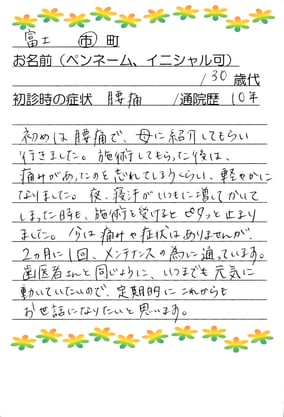 富士 市 町
お名前（ペンネーム、イニシャル可）
/30歳代
初診時の症状 腰痛 /通院歴 10年
初めは腰痛で、母に紹介してもらい
行きました。施術してもらった後は、
痛みがあったのを忘れてしまうくらい、軽やかに
なりました。夜、寝汗がいつもに増してかいて
しまった時も、施術を受けるとピタッと止まり
ました。今は痛みや症状はありませんが、
2ヵ月に1回、メンテナンスの為に通っています。
歯医者さんと同じように、いつまでも元気に
動いていたいので、定期的にこれからも
お世話になりたいと思います。